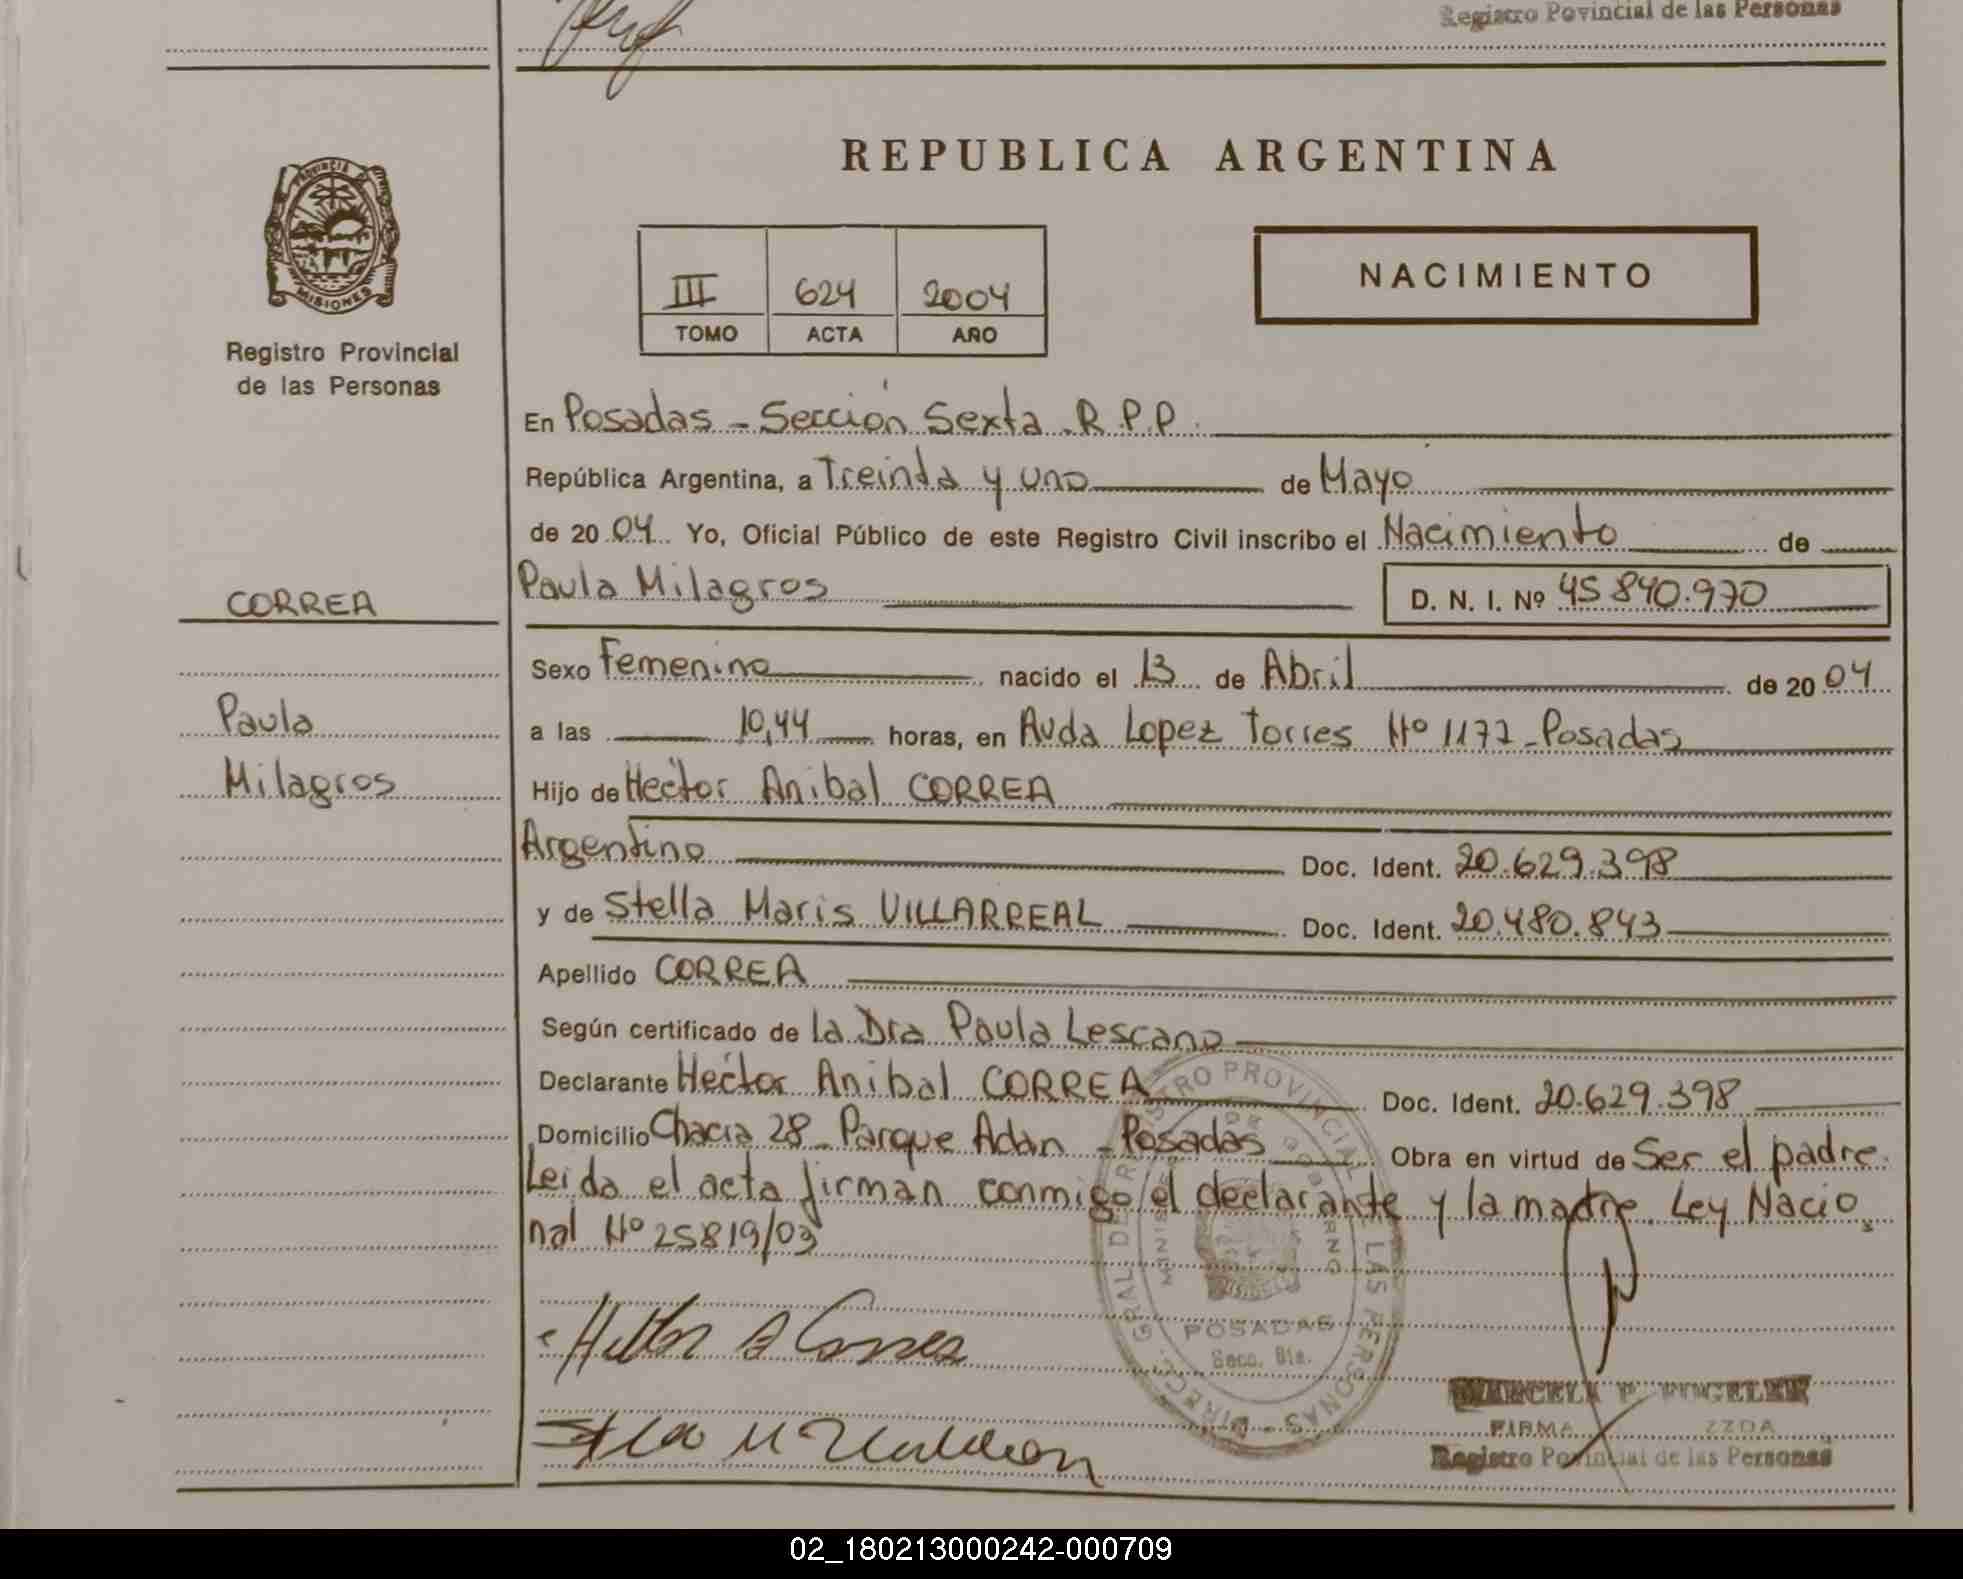 Registro Povincial de las Personas
REPUBLICA ARGENTINA
PROVINCIA DE
MISIONES
Registro Provincial
de las Personas
III 624 2004
TOMO ACTA AÑO
NACIMIENTO
En Posadas - Sección Sexta - R.P.P.
República Argentina, a Treinta y uno de Mayo
de 2004 Yo, Oficial Público de este Registro Civil inscribo el Nacimiento de
CORREA
Paula Milagros D. N. I. Nº 45 840.970
Sexo Femenino nacido el 13 de Abril de 2004
Paula
Milagros
a las 10,44 horas, en Avda Lopez Torres Nº 1177 - Posadas
Hijo de Hector Anibal CORREA
Argentino Doc. Ident. 20.629.398
y de Stella Maris VILLARREAL Doc. Ident. 20.480.843
Apellido CORREA
Según certificado de la Dra Paula Lescano
Declarante Hector Anibal CORREA Doc. Ident. 20.629.398
Domicilio Chacra 28 - Parque Adan - Posadas Obra en virtud de Ser el padre.
Leida el acta firman conmigo el declarante y la madre. Ley Nacio
nal Nº 25819/03
DIRECC. GRAL DE REGISTRO PROVINCIAL DE LAS PERSONAS
POSADAS
Secc. 6ta.
FIRMA
Registro Povincial de las Personas
02_180213000242-000709